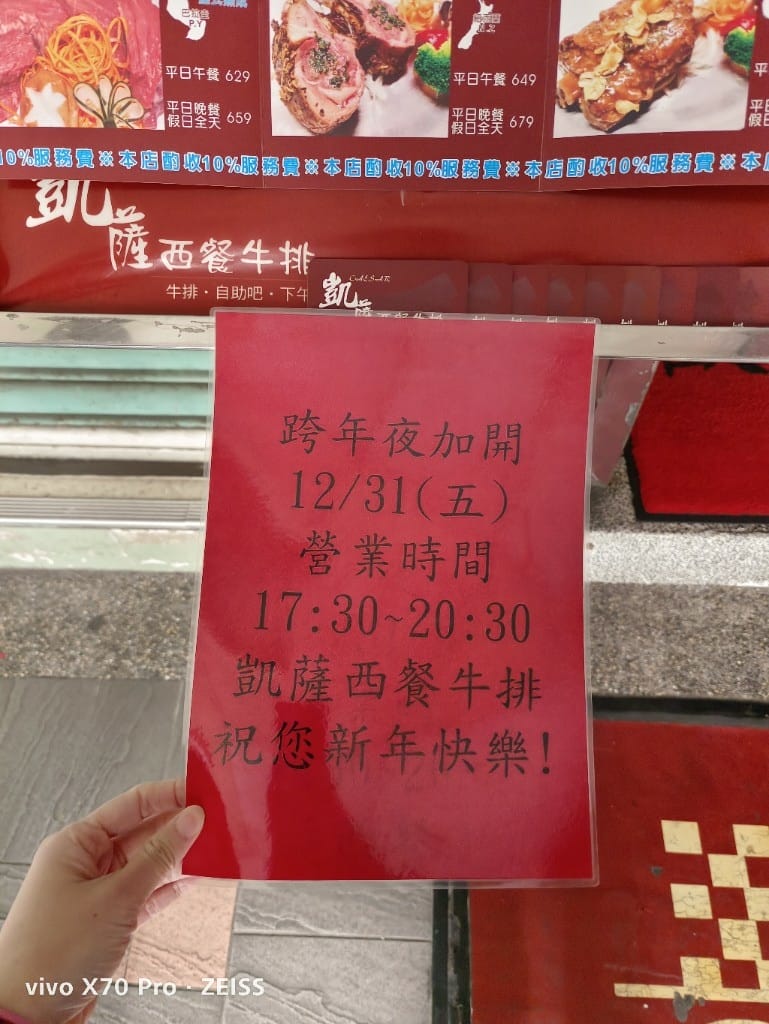 巴拉圭
P.Y
平日午餐 629
平日晚餐
假日全天 659
平日午餐 649
平日晚餐
假日全天 679
10%服務費※本店酌收10%服務費※本店酌收10%服務費※本店酌收10%服務費※本
凱薩西餐牛排
牛排·自助吧·下午
凱薩西餐牛排
跨年夜加開
12/31(五)
營業時間
17:30~20:30
凱薩西餐牛排
祝您新年快樂!
vivo X70 Pro · ZEISS